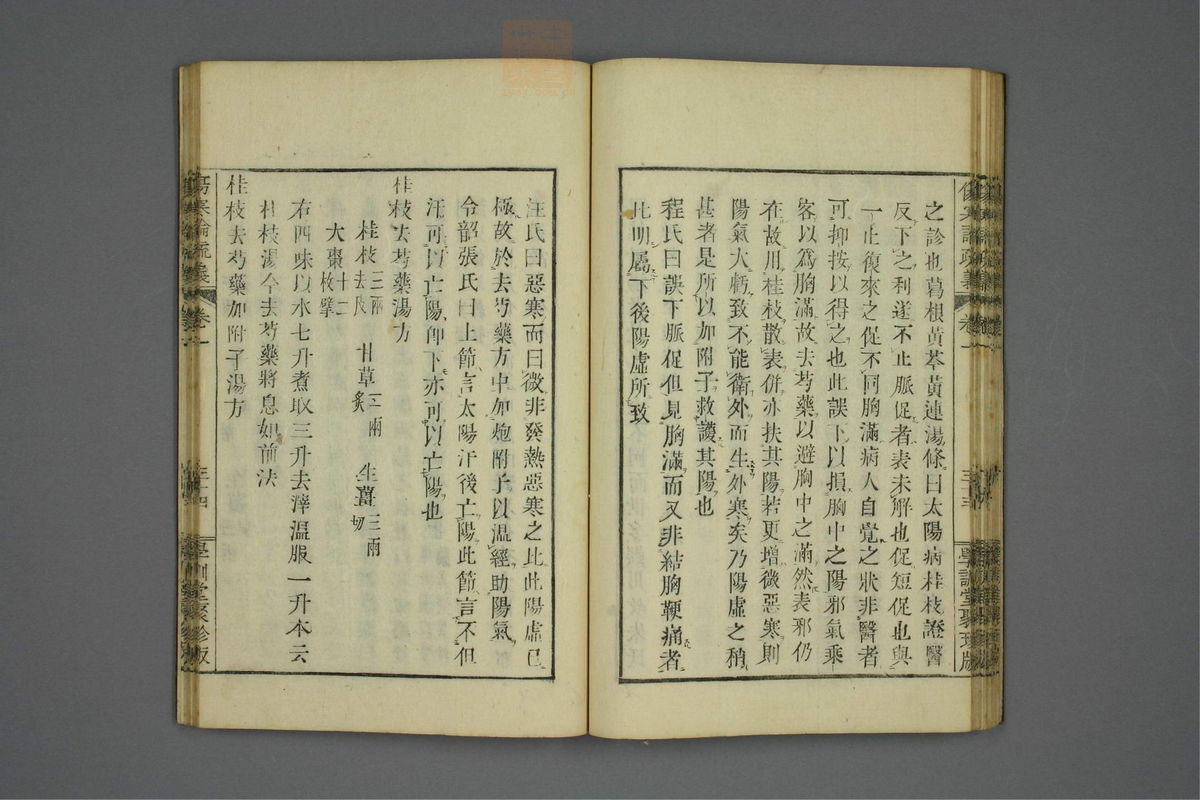 之診也葛根黃芩黃連湯條曰太陽病桂枝證醫
反下之利遂不止脈促者表未解也促短促也與
一止復來之促不同胸滿病人自覺之狀非醫者
可抑按以得之也此誤下以損胸中之陽邪氣乘
客以為胸滿故去芍藥以避胸中之滿然表邪仍
在故用桂枝散表併亦扶其陽若更增微惡寒則
陽氣大虧致不能衛外而生外寒矣乃陽虛之稍
甚者是所以加附子救護其陽也
程氏曰誤下脈促但見胸滿而又非結胸鞕痛者
比明屬下後陽虛所致
汪氏曰惡寒而曰微非發熱惡寒之比此陽虛已
極故於去芍藥方中加炮附子以溫經助陽氣
令韶張氏曰上節言太陽汗後亡陽此節言不但
汗可以亡陽卽下亦可以亡陽也
桂枝去芍藥湯方
桂枝三兩去皮 甘草二兩炙 生薑三兩切
大棗十二枚擘
右四味以水七升煮取三升去滓溫服一升本云
桂枝湯今去芍藥將息如前法
桂枝去芍藥加附子湯方
傷寒論疏義 卷一 三十四 學訓堂聚珍版